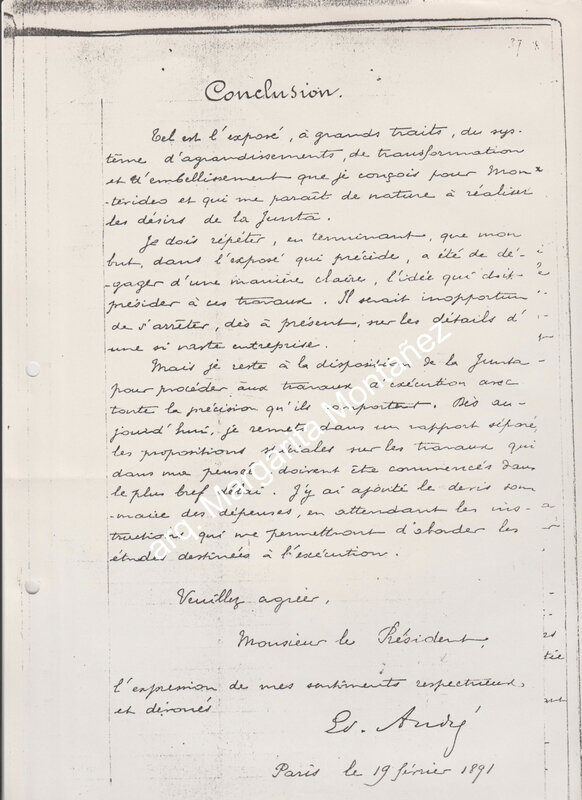 37
Conclusion.
Tel est l'exposé, à grands traits, du sys-
tème d'agrandissements, de transformation
et d'embellissement que je conçois pour Mon-
tévideo et qui me paraît de nature à réaliser
les désirs de la Junta.
Je dois répéter, en terminant, que mon
but, dans l'exposé qui précède, a été de dé-
-gager d'une manière claire, l'idée qui doit
présider à ces travaux. Il serait inopportun
de s'arrêter, dès à présent, sur les détails d'
une si vaste entreprise.
Mais je reste à la disposition de la Junta
pour procéder aux travaux d'exécution avec
toute la précision qu'ils comportent. Dès au-
jourd'hui, je remets dans un rapport séparé,
les propositions spéciales sur les travaux qui
dans ma pensée doivent être commencés dans
le plus bref délai. J'y ai ajouté le devis som-
-maire des dépenses, en attendant les ins-
tructions qui me permettront d'aborder les
études destinées à l'exécution.
Veuillez agréer,
Monsieur le Président,
l'expression de mes sentiments respectueux
et dévoués
Ed. André
Paris le 19 février 1891
arq. Margarita Montañez